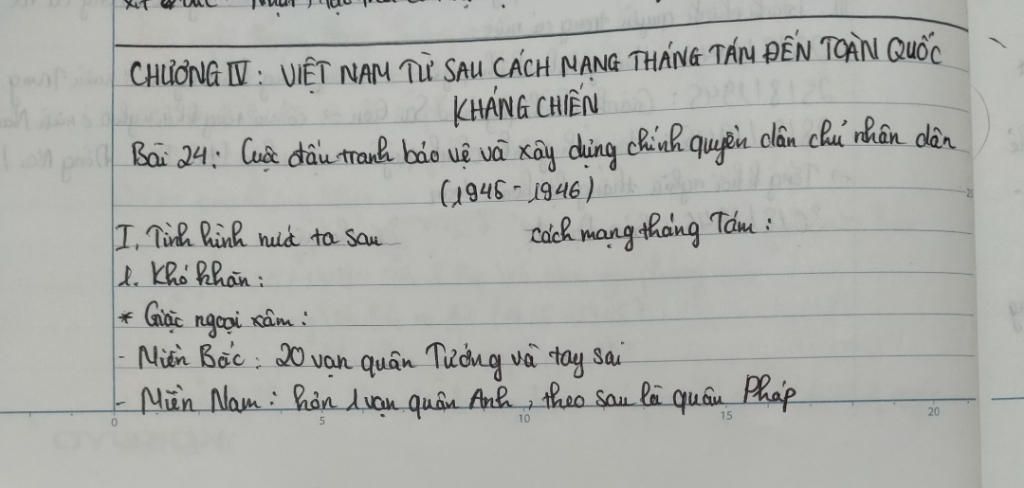 CHƯƠNG IV : VIỆT NAM TỪ SAU CÁCH MẠNG THÁNG TÁM ĐẾN TOÀN QUỐC
KHÁNG CHIẾN
Bài 24: Cuộc đấu tranh bảo vệ và xây dựng chính quyền dân chủ nhân dân
(1945 - 1946)
I. Tình hình nước ta sau cách mạng tháng Tám :
1. Khó khăn :
* Giặc ngoại xâm :
- Miền Bắc : 20 vạn quân Tưởng và tay sai
- Miền Nam : hơn 1 vạn quân Anh, theo sau là quân Pháp
0 5 10 15 20